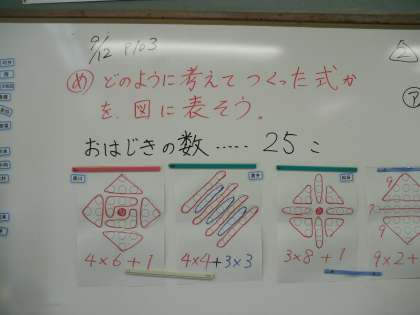 9/12 P103
め どのように考えてつくった式か
を、図に表そう。
おはじきの数‥‥‥ 25こ
4×6+1
4×4+3×3
3×8+1
9×2+
9
9
ア